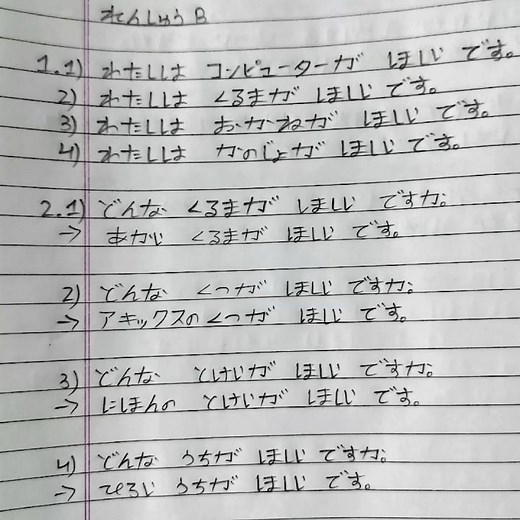 れんしゅう B
1.1) わたしは コンピューターが ほしい です。
2) わたしは くるまが ほしい です。
3) わたしは おかねが ほしい です。
4) わたしは かのじょが ほしい です。
2.1) どんな くるまが ほしい ですか。
→ あかい くるまが ほしい です。
2) どんな くつが ほしい ですか。
→ アキックスの くつが ほしい です。
3) どんな とけいが ほしい ですか。
→ にほんの とけいが ほしい です。
4) どんな うちが ほしい ですか。
→ ひろい うちが ほしい です。